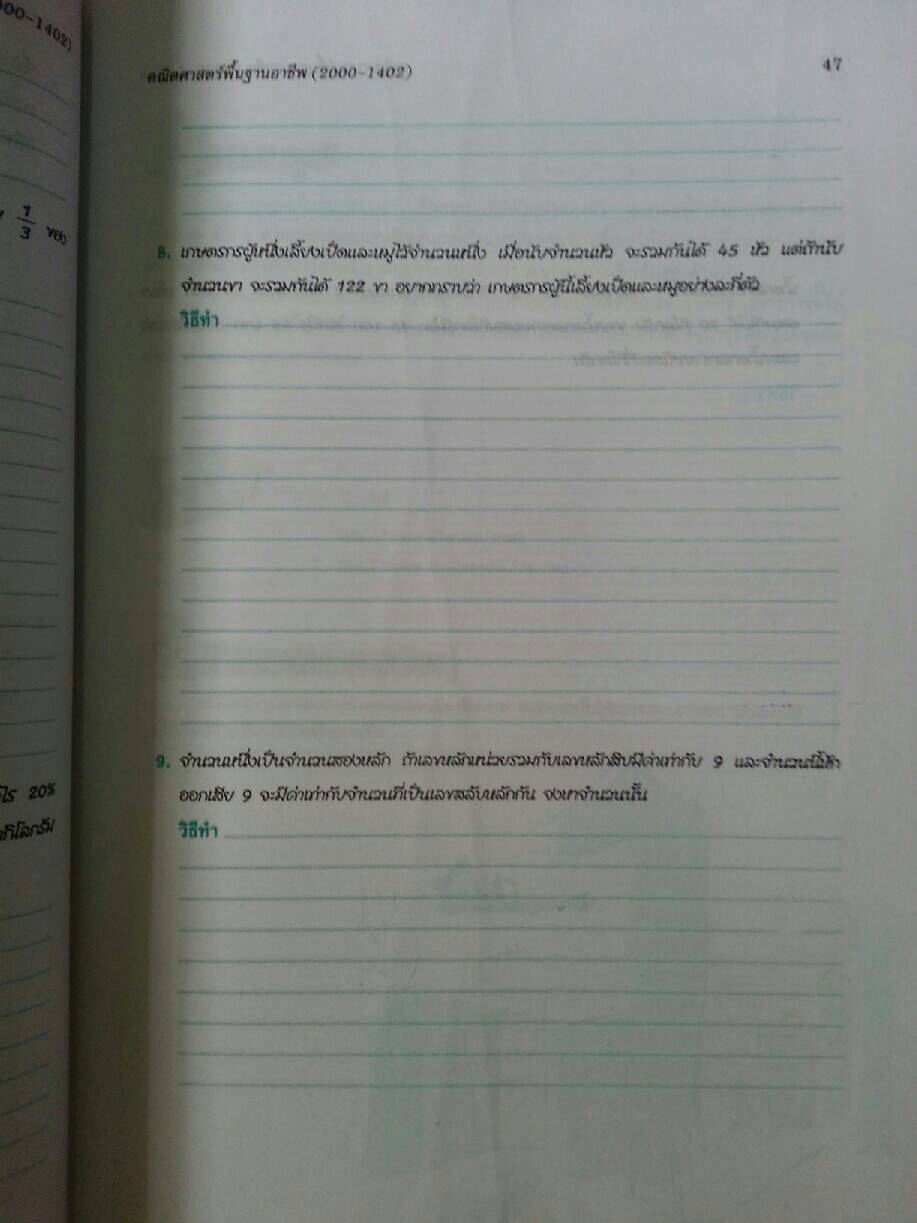 000-1402)
คณิตศาสตร์พื้นฐานอาชีพ (2000-1402)
47
1
3
ของ
8. เกษตรกรผู้หนึ่งเลี้ยงเป็ดและหมูไว้จำนวนหนึ่ง เมื่อนับจำนวนหัว จะรวมกันได้ 45 หัว แต่ถ้านับ
จำนวนขา จะรวมกันได้ 122 ขา อยากทราบว่า เกษตรกรผู้นี้เลี้ยงเป็ดและหมูอย่างละกี่ตัว
วิธีทำ
9. จำนวนหนึ่งเป็นจำนวนสองหลัก ถ้าเลขหลักหน่วยรวมกับเลขหลักสิบมีค่าเท่ากับ 9 และจำนวนนี้ชัก
ออกเสีย 9 จะมีค่าเท่ากับจำนวนที่เป็นเลขสลับหลักกัน จงหาจำนวนนั้น
ไร 20%
กิโลกรัม
วิธีทำ